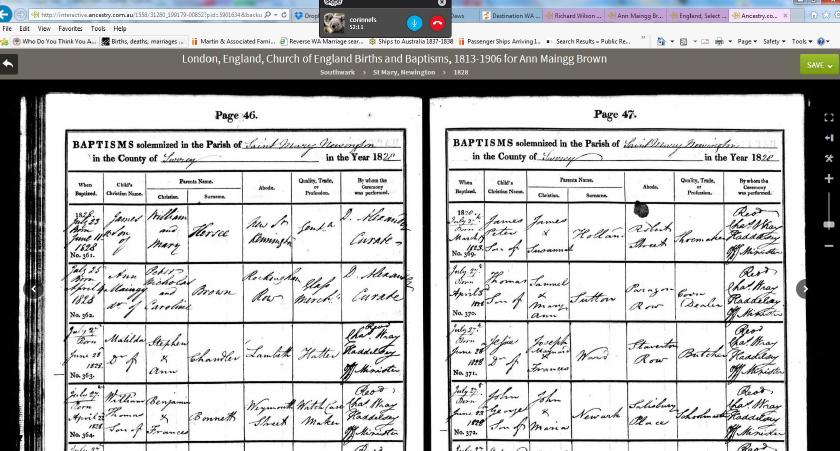 corinnefs
52:11
http://interactive.ancestry.com.au/1558/31280_199179-00852?pid=5901634&backu
Dropb
News
Destination WA
Richard Wilson
Ann Maingg Br...
England, Select ...
Ancestry.co...
File Edit View Favorites Tools Help
Who Do You Think You A...
Births, deaths, marriages ...
Martin & Associated Famil...
Reverse WA Marriage sear...
Ships to Australia 1837-1838
Passenger Ships Arriving 1...
Search Results – Public Re...
Page
Safety
Tools
London, England, Church of England Births and Baptisms, 1813-1906 for Ann Maingg Brown
Southwark > St Mary, Newington > 1828
SAVE
Page 46.
BAPTISMS solemnized in the Parish of Saint Mary Newington
in the County of Surrey in the Year 1828
When Baptized.
Child's Christian Name.
Parents Name.
Christian.
Surname.
Abode.
Quality, Trade, or Profession.
By whom the Ceremony was performed.
1828.
July 23
Born
June 11
1828
No. 361.
James
Son of
William
and
Mary
Kennington
Curate
July 25
Born
April 4
1828
No. 362.
Ann
Maingg
Dr of
Peter
Nicholas
and
Caroline
Brown
Rockingham
Row
Glass
Mercht
Curate
July 27
Born
June 28
1828
No. 363.
Matilda
Dr of
Stephen
&
Ann
Chandler
Lambeth
Hatter
Revd
Chas Wray
Haddelsey
Off Minister
July 27
Born
April 22
1828
No. 364.
William
Thomas
Son of
Benjamin
&
Frances
Bonnett
Weymouth
Street
Watch Case
Maker
Revd
Chas Wray
Haddelsey
Off Minister
Page 47.
BAPTISMS solemnized in the Parish of Saint Mary Newington
in the County of Surrey in the Year 1828
When Baptized.
Child's Christian Name.
Parents Name.
Christian.
Surname.
Abode.
Quality, Trade, or Profession.
By whom the Ceremony was performed.
July 27
Born
March
No. 369.
James
Peter
Son of
James
&
Susannah
Holland
Robert
Street
Shoemaker
Revd
Chas Wray
Haddelsey
Off Minister
July 27
Born
April
1828
No. 370.
Thomas
Son of
Samuel
&
Mary
Ann
Sutton
Paragon
Row
Corn
Dealer
Revd
Chas Wray
Haddelsey
Off Minister
July 27
Born
June
1828
No. 371.
Dr of
Joseph
Frances
Ward
Row
Butcher
Revd
Chas Wray
Haddelsey
Off Minister
July 27
Born
June
1828
No. 372.
John
George
Son of
John
&
Maria
Newark
Salisbury
Place
Revd
Chas Wray
Haddelsey
Off Minister